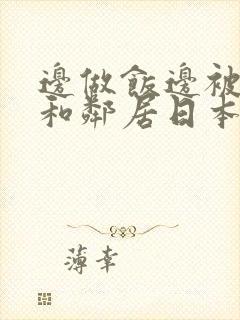 邊做飯邊被
和鄰居日本
薄幸